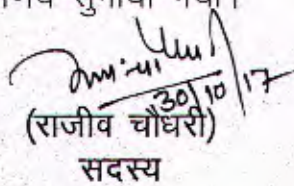 सुनाया गया।
30/10/17
(राजीव चौधरी)
सदस्य